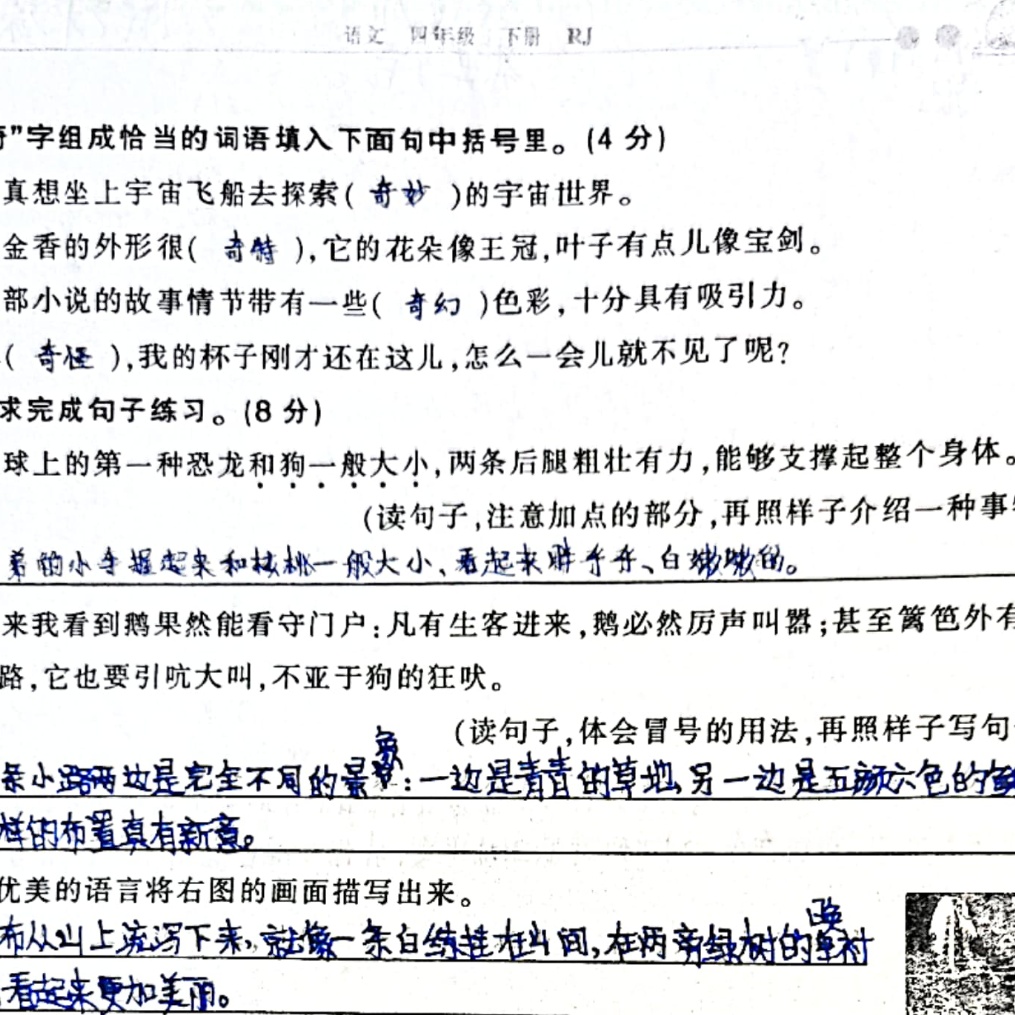 语文 四年级 下册 RJ
”字组成恰当的词语填入下面句中括号里。(4 分)
真想坐上宇宙飞船去探索( 奇妙 )的宇宙世界。
金香的外形很( 奇特 ),它的花朵像王冠,叶子有点儿像宝剑。
部小说的故事情节带有一些( 奇幻 )色彩,十分具有吸引力。
( 奇怪 ),我的杯子刚才还在这儿,怎么一会儿就不见了呢?
求完成句子练习。(8 分)
球上的第一种恐龙和狗一般大小,两条后腿粗壮有力,能够支撑起整个身体。
(读句子,注意加点的部分,再照样子介绍一种事
的小手握起来和核桃一般大小、看起来胖乎乎、白嫩嫩的。
来我看到鹅果然能看守门户:凡有生客进来,鹅必然厉声叫嚣;甚至篱笆外有
路,它也要引吭大叫,不亚于狗的狂吠。
(读句子,体会冒号的用法,再照样子写句
条小路两边是完全不同的景象:一边是青青的草地,另一边是五颜六色的
样的布置真有新意。
优美的语言将右图的画面描写出来。
布从山上流泻下来,就像一条白练挂在山间,在两旁绿树的映衬
看起来更加美丽。